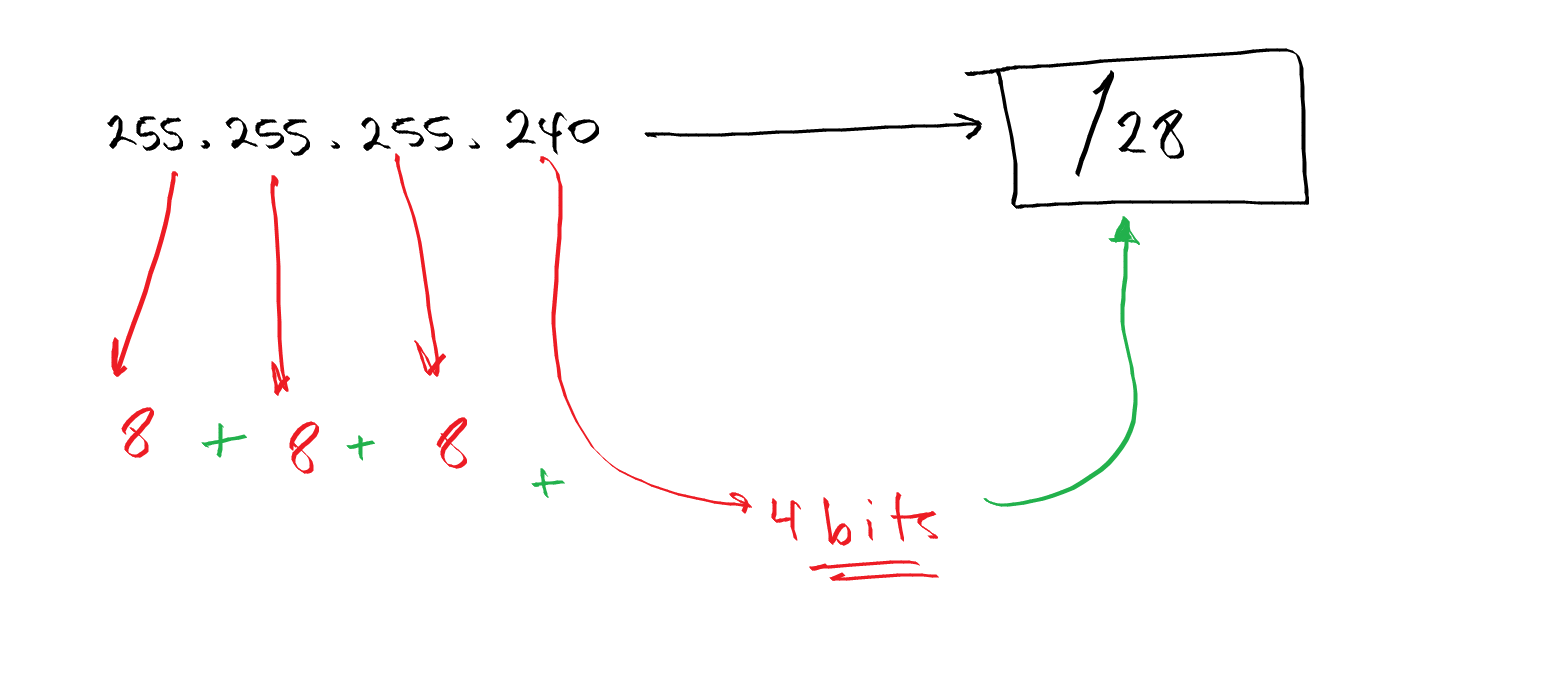 255.255.255.240 /28
8 + 8 + 8 + 4 bits